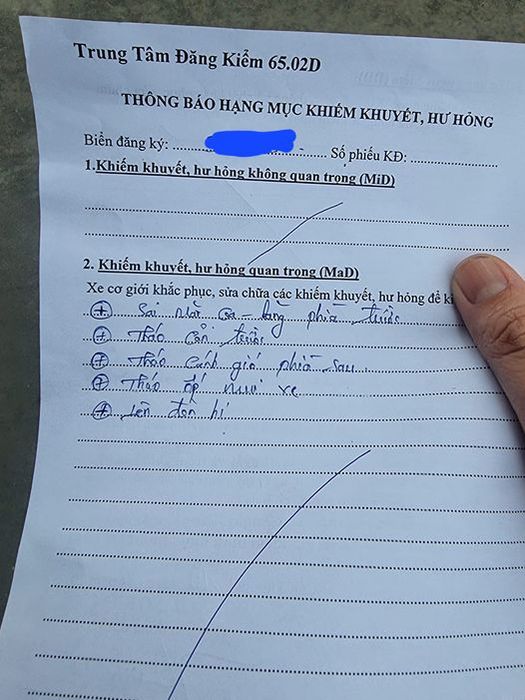 Trung Tâm Đăng Kiểm 65.02D
THÔNG BÁO HẠNG MỤC KHIẾM KHUYẾT, HƯ HỎNG
Biển đăng ký: Số phiếu KĐ:
1.Khiếm khuyết, hư hỏng không quan trọng (MiD)
2. Khiếm khuyết, hư hỏng quan trọng (MaD)
Xe cơ giới khắc phục, sửa chữa các khiếm khuyết, hư hỏng để
Sai mặt ca-lăng phía trước
Tháo cản trước
Tháo cánh gió phía sau
Tháo ốp xe
đèn